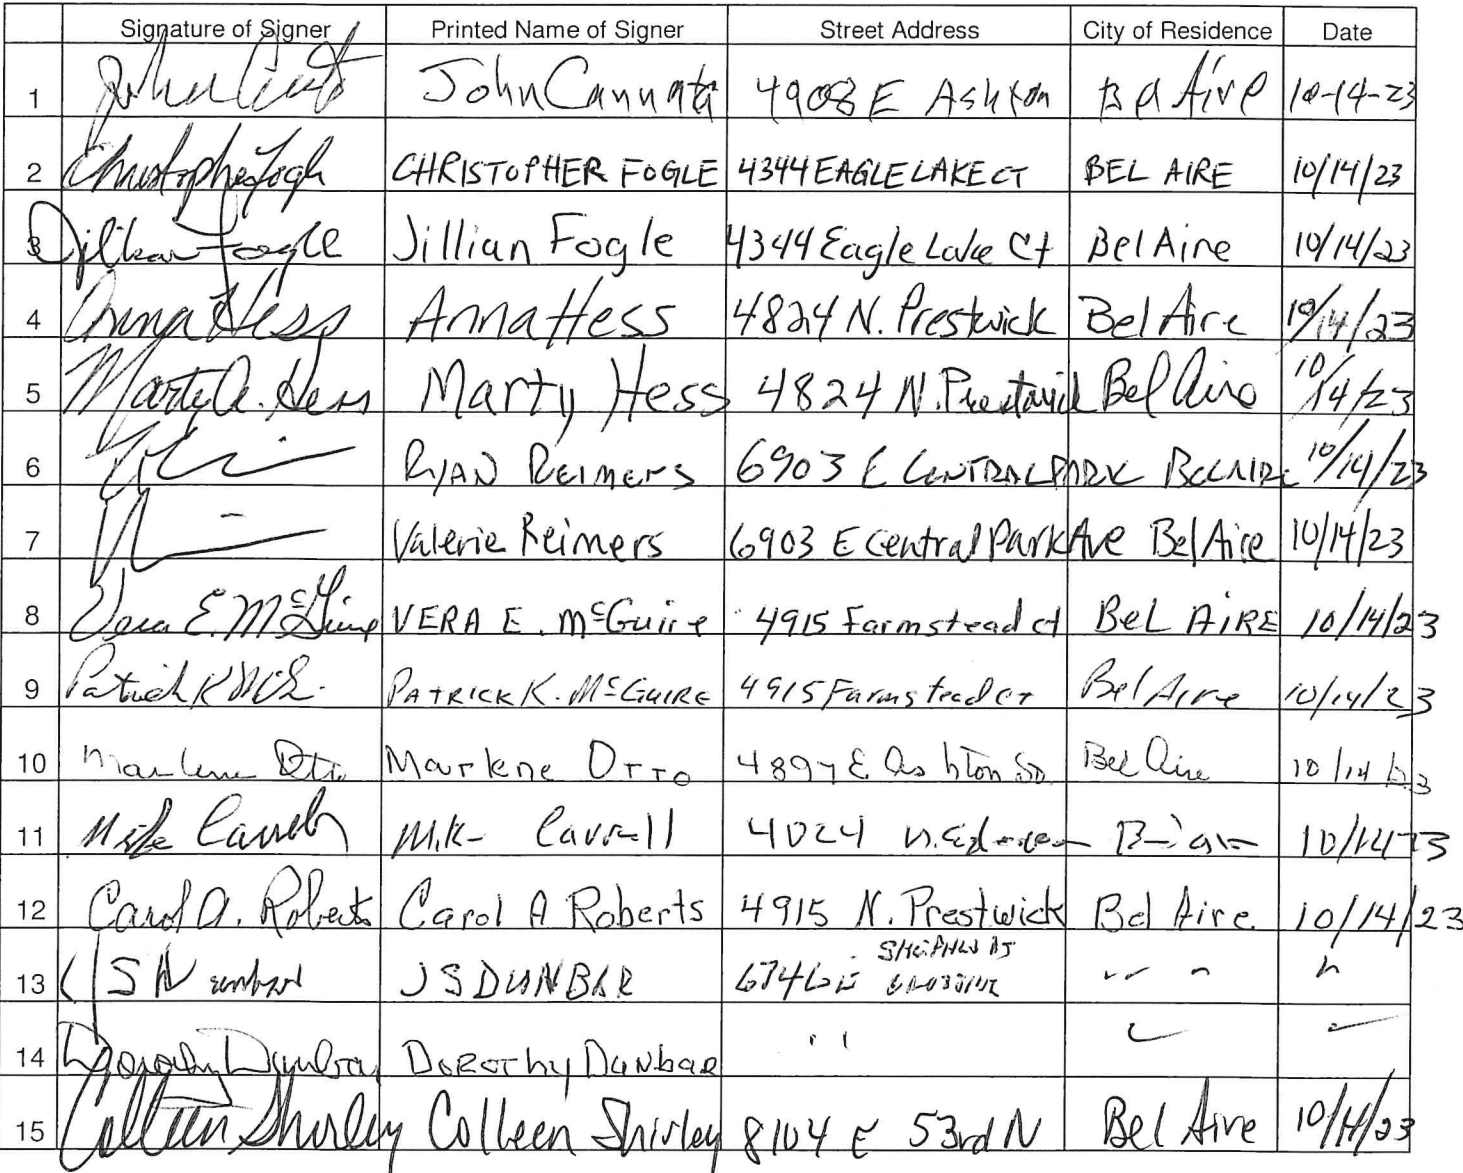 Signature of Signer Printed Name of Signer Street Address City of Residence Date
1 John Cannata 4908 E Ashton Bel Aire 10-14-23
2 Christopher Fogle CHRISTOPHER FOGLE 4344 EAGLE LAKE CT BEL AIRE 10/14/23
3 Jillian Fogle Jillian Fogle 4344 Eagle Lake Ct Bel Aire 10/14/23
4 Anna Hess Anna Hess 4824 N. Prestwick Bel Aire 10/14/23
5 Marty A. Hess Marty Hess 4824 N. Prestwick Bel Aire 10/14/23
6 RYAN REIMERS 6903 E CENTRAL PARK BELAIRE 10/14/23
7 Valerie Reimers 6903 E Central Park Ave Bel Aire 10/14/23
8 Vera E. McGuire VERA E. McGuire 4915 Farmstead ct BeL AiRE 10/14/23
9 Patrick K PATRICK K. McGUIRE 4915 Farmstead CT Bel Aire 10/14/23
10 Marlene Otto Marlene OTTO E Ashton Bel Aire 10/14/23
11 Mike Carroll 4024 10/14/23
12 Carol A. Roberts Carol A Roberts 4915 N. Prestwick Bel Aire 10/14/23
13 J S Dunbar J S DUNBAR " "
14 Dorothy Dunbar DOROTHY Dunbar "
15 Colleen Shirley Colleen Shirley 8104 E 53rd N Bel Aire 10/14/23